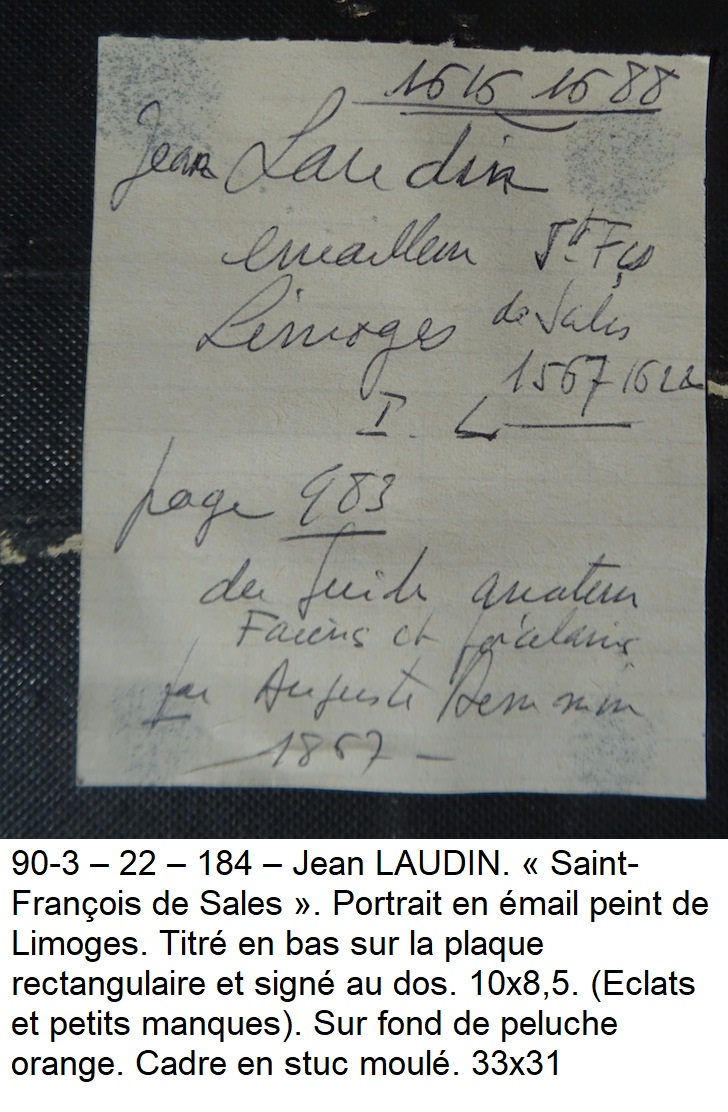 1616 1688
Jean Laudin
emailleur St Fçs
Limoges de Sales
1567 1622
I. L
page 983
du Guide amateur
Faiens et porcelaines
par Auguste Demmin
1867
90-3 – 22 – 184 – Jean LAUDIN. « Saint-
François de Sales ». Portrait en émail peint de
Limoges. Titré en bas sur la plaque
rectangulaire et signé au dos. 10x8,5. (Eclats
et petits manques). Sur fond de peluche
orange. Cadre en stuc moulé. 33x31